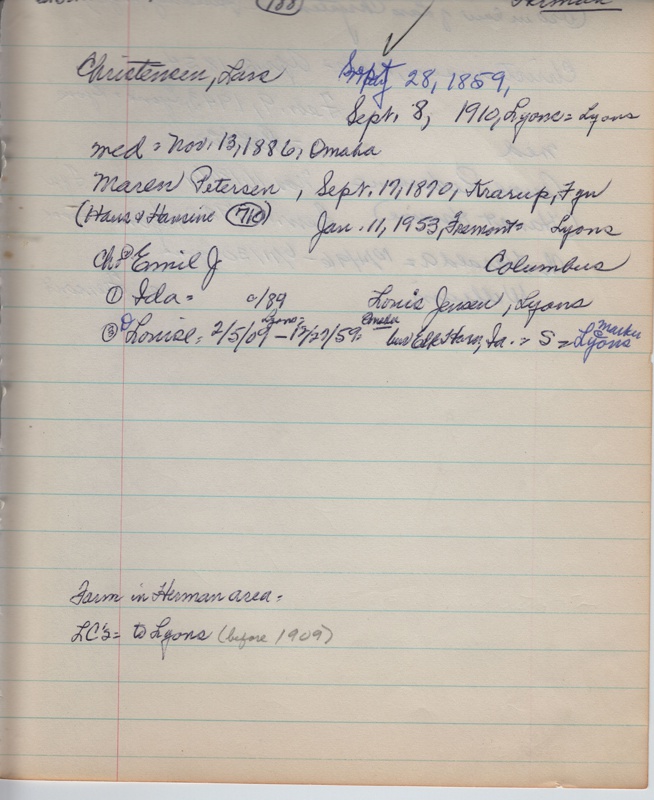 188 Herman
Christensen, Lars Sept 28, 1859,
Sept. 8, 1910, Lyons = Lyons
med = Nov. 13, 1886, Omaha
Maren Petersen, Sept. 17, 1870, Krarup, Fyn
(Hans & Hansine 710) Jan. 11, 1953, Fremont = Lyons
Ch = Emil J Columbus
① Ida = 0/89 Louis Jensen, Lyons
③ Louise = 2/5/09 Lyons = - 12/27/59 = Omaha bur Elk Horn, Ia. = S = Lyons
Farm in Herman area =
LC's = to Lyons (before 1909)